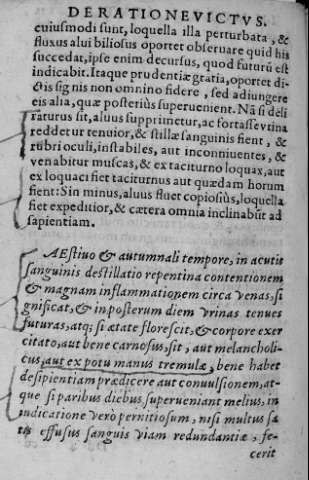 DE RATIONE VICTVS.
cuiusmodi sunt, loquella illa perturbata, &
fluxus alui biliosus oportet obseruare quid his
succedat, ipse enim decursus, quod futurũ est
indicabit. Itaque prudentiæ gratia, oportet di-
ctis signis non omnino fidere, sed adiungere
eis alia, quæ posteriùs superuenient. Nã si deli
raturus sit, aluus supprimetur, ac fortasse vrina
reddetur tenuior, & stillæ sanguinis fient, &
rubri oculi, instabiles, aut inconniuentes, &
venabitur muscas, & ex taciturno loquax, aut
ex loquaci fiet taciturnus aut quædam horum
fient: Sin minus, aluus fluet copiosiùs, loquella
fiet expeditior, & cætera omnia inclinabũt ad
sapientiam.
AEstiuo & autumnali tempore, in acutis
sanguinis destillatio repentina contentionem
& magnam inflammationem circa venas, si
gnificat, & in posterum diem vrinas tenues
futuras, atq; si ætate florescit, & corpore exer
citato, aut bene carnosus, sit, aut melancholi-
cus, aut ex potu manus tremulæ, bene habet
desipientiam prædicere aut conuulsionem, at-
que si paribus diebus superueniant melius, in
iudicatione verò pernitiosum, nisi multus sa
tis effusus sanguis viam redundantiæ, fe-
cerit